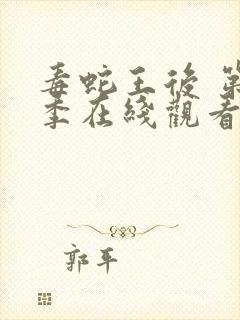 毒蛇王後 第
季在綫觀看
郭平